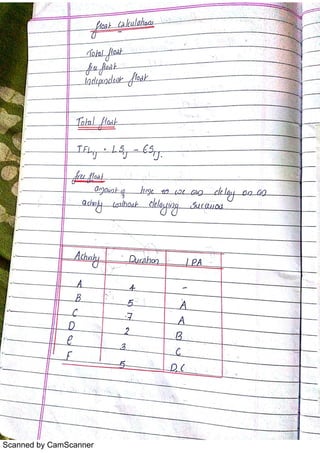 float Calculations
Total float
free float
Independent float
Total float
TFij = LSij - ESij.
free float
amount of time we can delay on an
activity without delaying
Activity Duration IPA
A 4 -
B 5 A
C 7 A
D 2 B
e 3 C
F 5 D, C
Scanned by CamScanner